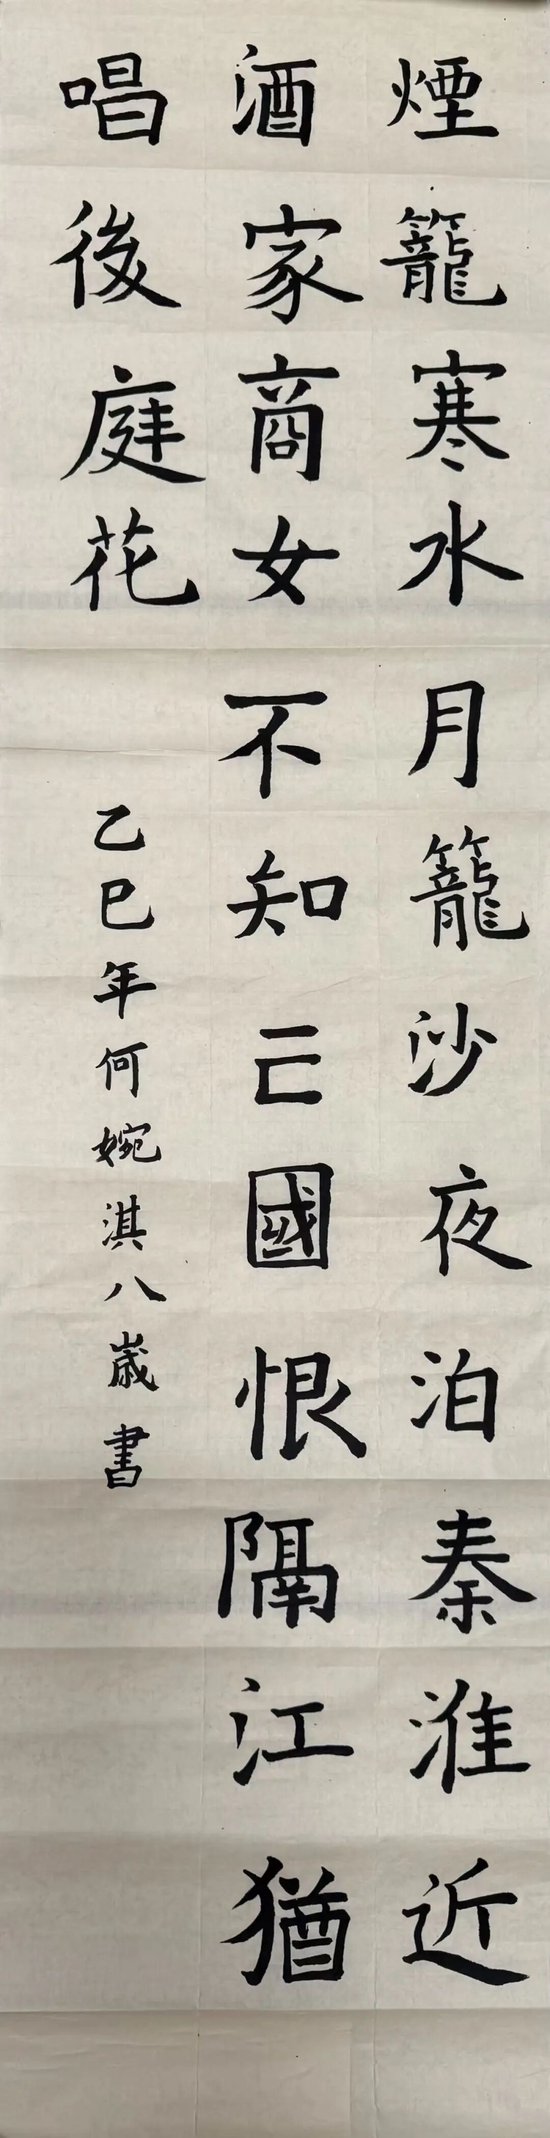 煙籠寒水月籠沙夜泊秦淮近
酒家商女不知亡國恨隔江猶
唱後庭花
乙巳年何婉淇八歲書